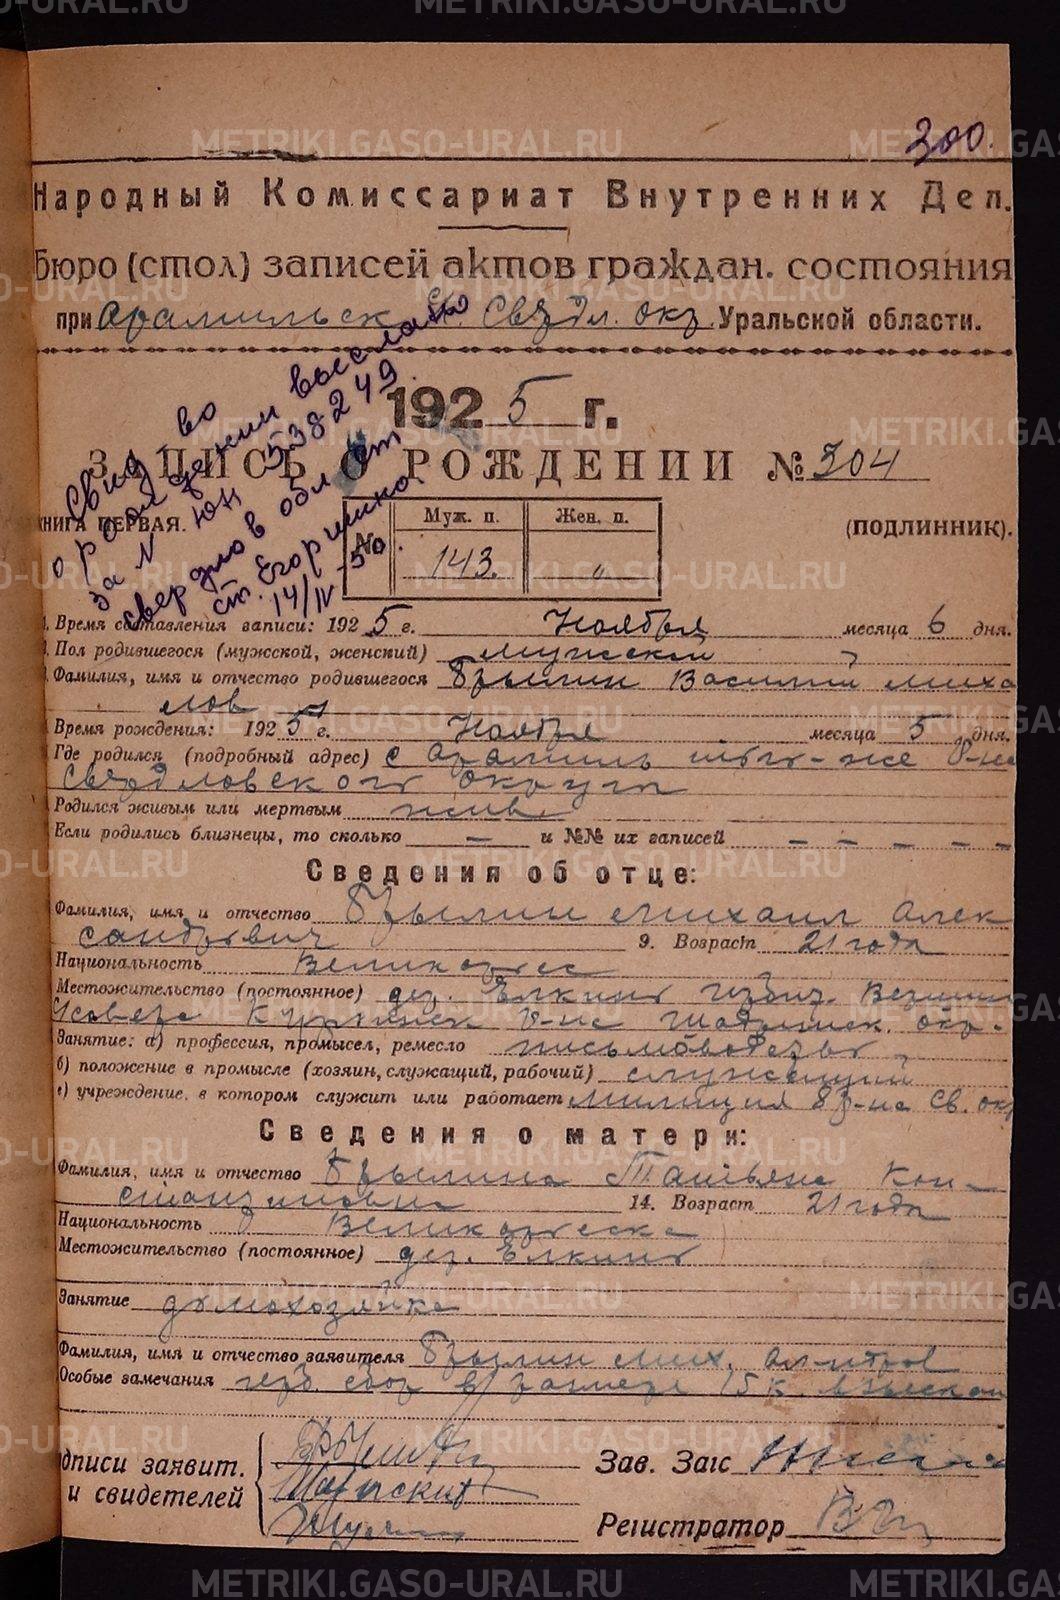 300.
Народный Комиссариат Внутренних Дел.
Бюро (стол) записей актов граждан. состояния
при Арамильск Свердл. окр. Уральской области.
Свид во
о рождении выслано
за N ЮН 538249
свердлов обл
ст. Егоршино
14/IV-50
1925 г.
ЗАПИСЬ О РОЖДЕНИИ № 304
КНИГА ПЕРВАЯ. (ПОДЛИННИК).
№ Муж. п. Жен. п.
143. "
Время составления записи: 1925 г. Ноября месяца 6 дня.
Пол родившегося (мужской, женский) мужской
Фамилия, имя и отчество родившегося Брылин Василий Миха
лов
Время рождения: 1925 г. Ноября месяца 5 дня.
Где родился (подробный адрес) с Арамиль р-на
Свердловского округа
Родился живым или мертвым жив
Если родились близнецы, то сколько — и №№ их записей — — — — —
Сведения об отце:
Фамилия, имя и отчество Брылин Михаил Алек
сандрович 9. Возраст 21 года
Национальность Великоросс
Местожительство (постоянное) дер. Елкино
р-на Шадринск. окр.
Занятие: а) профессия, промысел, ремесло письмоводитель
б) положение в промысле (хозяин, служащий, рабочий) служащий
в) учреждение, в котором служит или работает милиция р-на Св. окр
Сведения о матери:
Фамилия, имя и отчество Брылина Татьяна Кон
стантиновна 14. Возраст 21 года
Национальность Великоросска
Местожительство (постоянное) дер. Елкино
Занятие домохозяйка
Фамилия, имя и отчество заявителя Брылин Мих.
Особые замечания герб. сбор в размере 15 к. взыскан
подписи заявит.
и свидетелей
Зав. Загс
Регистратор
METRIKI.GASO-URAL.RU